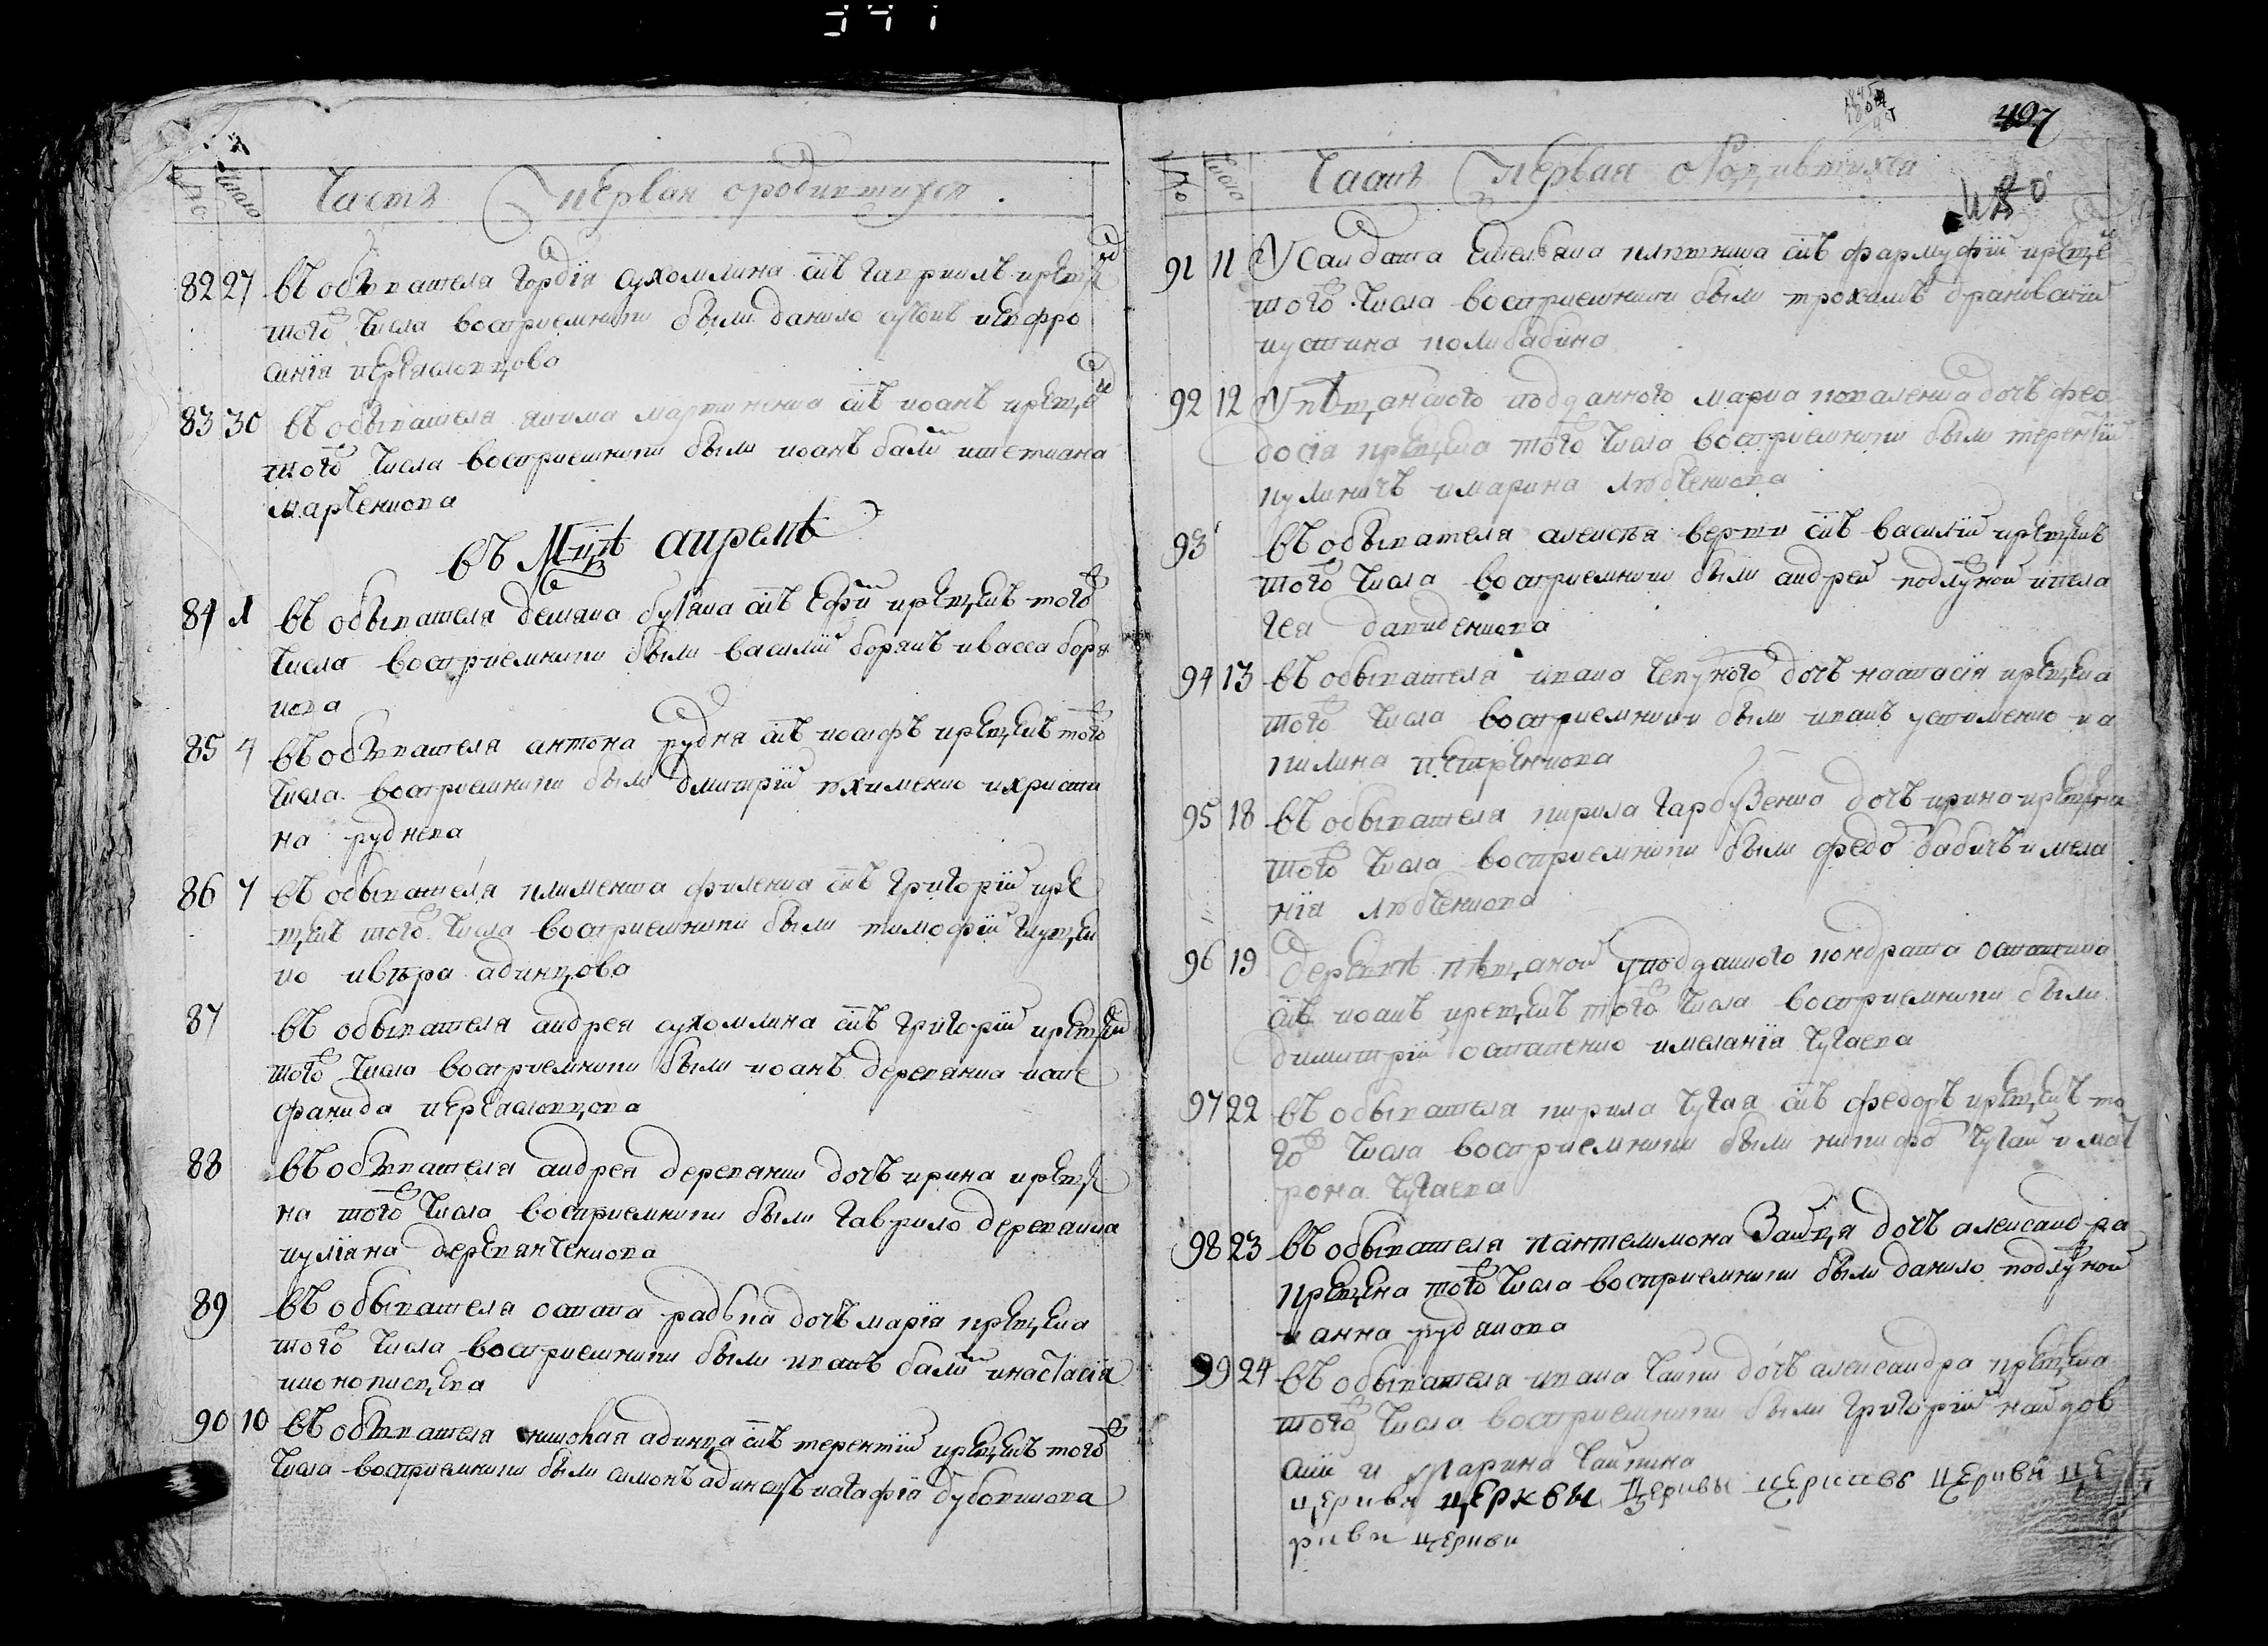 № Число Часть первая о родившихся
82 27 въ обывателя Гордія Сухомлина сінъ гавриилъ крещенъ
того числа восприемники были данило сутокъ и евфро
синія переясловцова
83 30 въ обывателя якима мартиненка сінъ иоанъ крещенъ
того числа восприемники были иоанъ балій и тетиана
марченкова
въ Мцѣ априлѣ
84 1 въ обывателя демяна бугаіка сінъ ефімъ крещенъ того
числа восприемники были василій борякъ и васса боря
кова
85 4 въ обывателя антона рудня сінъ иосифъ крещенъ того
числа восприемники были дмитрій юхименко и христи
на руднева
86 7 въ обывателя климента филенка сінъ григорій кре
щенъ того числа восприемники были тимофій глущен
ко и вѣра адинцова
87 въ обывателя андрея сухомлина сінъ григорій крещенъ
того числа восприемники были иоанъ деревянка и сте
фанида переясловцова
88 въ обывателя андрея деревянки дочъ ирина креще
на того числа восприемники были гаврило деревянка
и уліяна деревянченкова
89 въ обывателя остапа радька дочъ марія крещена
того числа восприемники были иванъ балій и настасія
иконописцева
90 10 въ обывателя николая адинца сінъ терентій крещенъ того
числа восприемники были симонъ адинецъ и агафія дубовикова
497
№ Число Часть первая о Родившихся
91 11 У Солдата емельяна плотника сінъ фармуфій крещенъ
того числа восприемники были трохимъ драновскій
и устина полибабина
92 12 У пѣщанского подданного марка коваленка дочъ фео
досія крещена того числа восприемники были терентій
кулиничъ и марина любченкова
93 въ обывателя алексѣя верти сінъ василій крещенъ
того числа восприемники были андрей подлузной и пела
гея давиденкова
94 13 въ обывателя ивана чепурного дочъ настасія крещена
того числа восприемники были иванъ устименко и а
килина петренкова
95 18 въ обывателя кирила гарбузенка дочъ ирина крещена
того числа восприемники были федоръ бабичъ и мела
нія любченкова
96 19 деревнѣ пѣщаной у подданного кондрата остапенка
сінъ иоанъ крещенъ того числа восприемники были
димитрій остапенко и меланія чугаева
97 22 въ обывателя кирила чугая сінъ федоръ крещенъ то
го числа восприемники были никифоръ чугай и мат
рона чугаева
98 23 въ обывателя пантелимона Зайця дочъ александра
крещена того числа восприемники были данило подлузной
и анна рудякова
99 24 въ обывателя ивана чайки дочъ александра крещена
того числа восприемники были григорій найдов
скій и марина чайкина
церквы церквы церквы церквы церквы це
ркви церкви